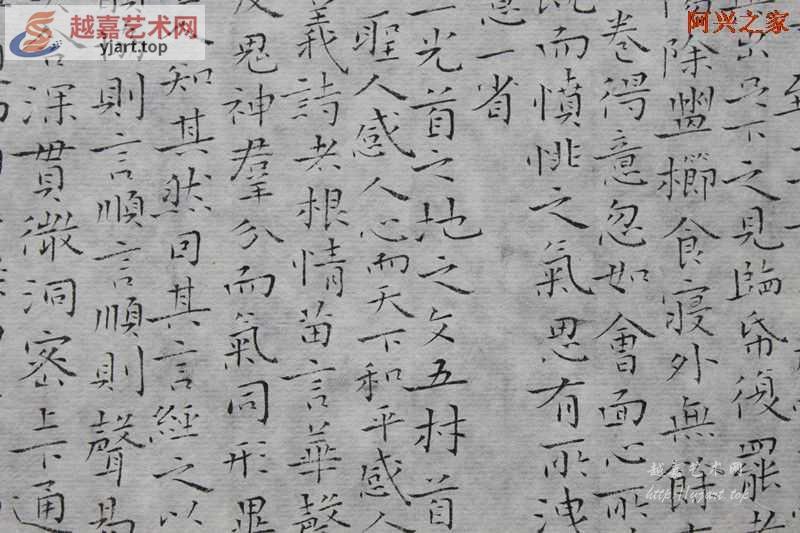 越嘉艺术网
yjart.top
阿兴之家
至
出足下之見臨帋復罷者
陽除盥櫛食寢外無餘
卷得意忽如會面心所
既而憤悱之氣思有所洩
一省
光首之地之文五材首
聖人感人心而天下和平感人
義詩者根情苗言華聲
鬼神羣分而氣同形異
知其然因其言經之以
則言順言順則聲易
深貫微洞密上下通
越嘉艺术网
http://yjart.top